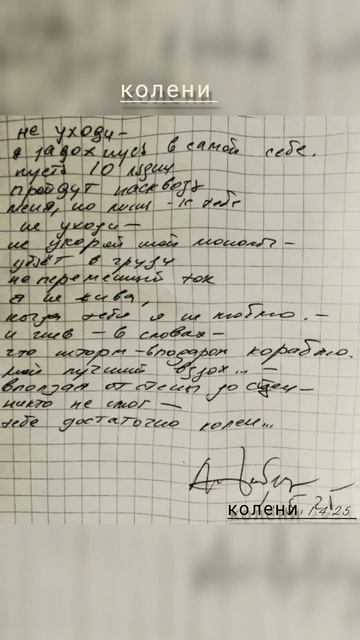 колени
не уходи –
я задохнусь в самой себе.
пусть 10 лузин
пройдут насквозь
меня, но лишь – к тебе
не уходи –
не укоряй мой
в грузу
не переменный ток
я не жива,
когда тебя я не люблю. –
и гнев – в словах –
что шторм – в подарок кораблю.
мой лучший вздох... –
вползая от стены до
никто не смог –
тебе достаточно колен...
колени